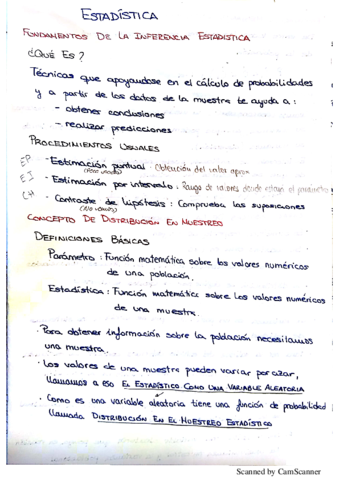 ESTADÍSTICA
FUNDAMENTOS DE LA INFERENCIA ESTADISTICA
¿QUÉ ES?
Técnicas que apoyandose en el cálculo de probabilidades
y a partir de los datos de la muestra te ayuda a:
- obtener conclusiones
- realizar predicciones
PROCEDIMIENTOS USUALES
EP - Estimación puntual: Obtención del valor aprox
EI - Estimación por intervalo: Rango de valores donde estam el parámetro
CH - Contraste de hipótesis: Comprueba las suposiciones
CONCEPTO DE DISTRIBUCIÓN EN MUESTREO
DEFINICIONES BÁSICAS
Parámetro: Función matemática sobre los valores numéricos
de una población.
Estadística: Función matemática sobre los valores numéricos
de una muestra.
· Para obtener información sobre la población necesitamos
una muestra.
· Los valores de una muestra pueden variar por azar,
llamamos a eso EL ESTADÍSTICO COMO UNA VARIABLE ALEATORIA
· Como es una variable aleatoria tiene una función de probabilidad
llamada DISTRIBUCIÓN EN EL MUESTREO ESTADÍSTICO
Scanned by CamScanner